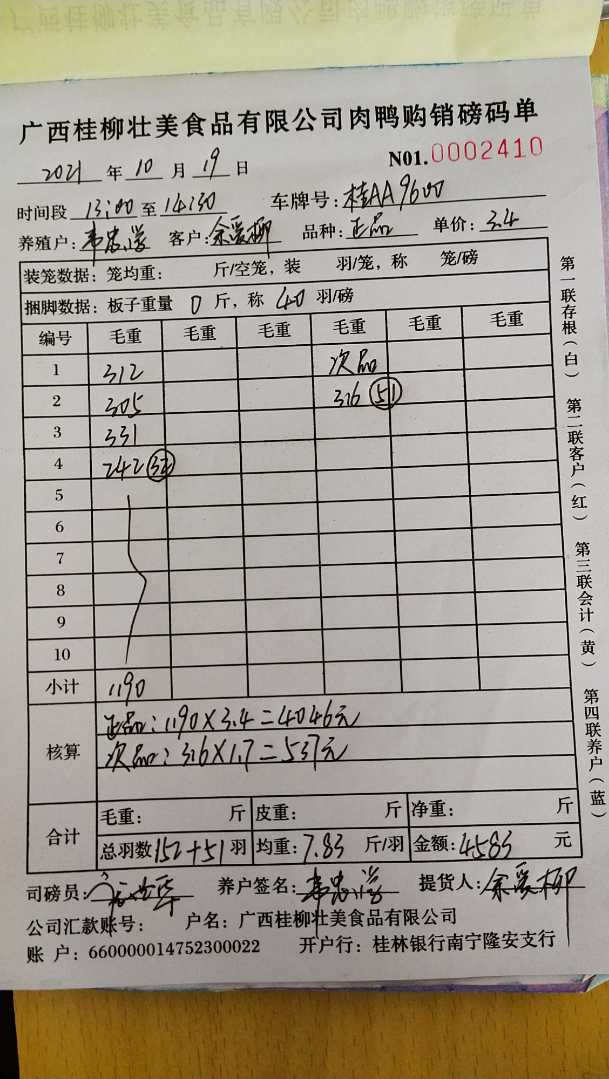 广西桂柳壮美食品有限公司肉鸭购销磅码单
2021 年 10 月 19 日 N01.0002410
时间段 13:00 至 14:30 车牌号:桂AA9600
养殖户:韦忠学 客户:余爱柳 品种:正品 单价:3.4
装笼数据:笼均重: 斤/空笼,装 羽/笼,称 笼/磅
捆脚数据:板子重量 0 斤,称 40 羽/磅
编号 毛重 毛重 毛重 毛重 毛重 毛重
1 312 次品
2 305 316 51
3 331
4 242 32
5
6
7
8
9
10
小计 1190
核算 正品:1190×3.4=4046元
次品:316×1.7=537元
合计 毛重: 斤 皮重: 斤 净重: 斤
总羽数152+51羽 均重:7.83 斤/羽 金额:4583 元
司磅员: 养户签名:韦忠学 提货人:余爱柳
公司汇款账号: 户名:广西桂柳壮美食品有限公司
账 户:660000014752300022 开户行:桂林银行南宁隆安支行
第一联存根(白) 第二联客户(红) 第三联会计(黄) 第四联养户(蓝)